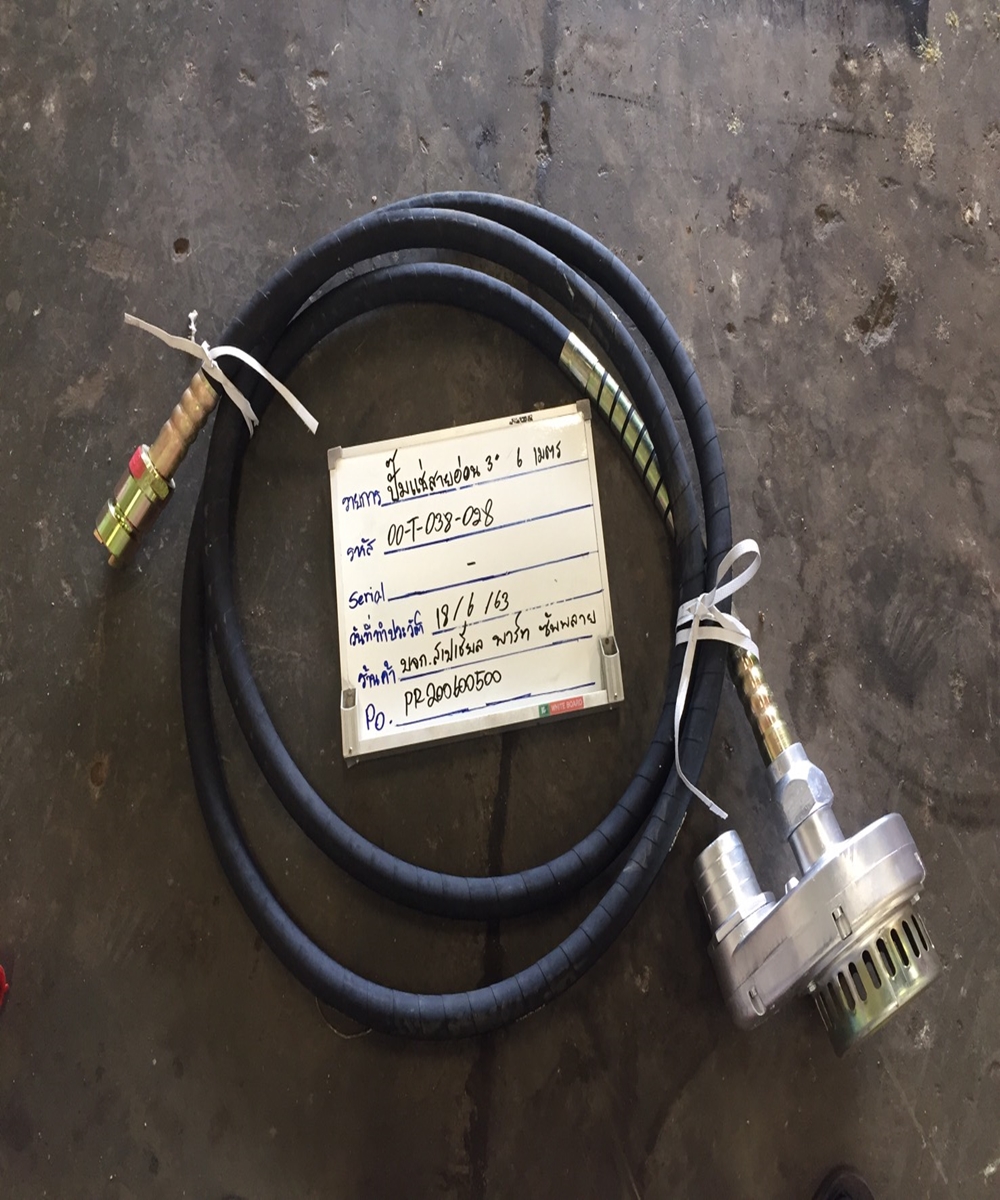 รายการ ปั๊มแช่สายอ่อน 3" 6 เมตร
รหัส 00-T-038-028
Serial -
วันที่ทำประวัติ 18/6/63
ร้านค้า บจก.สเปเชี่ยล พาร์ท ซัพพลาย
PO. PR200600500
WHITE BOARD